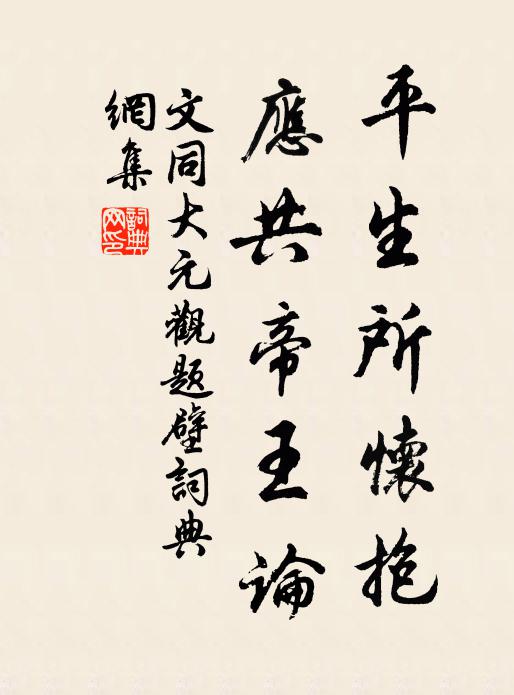 平生所懷抱
應共帝王論
文同大元觀題壁詞典
網集
詞典網印